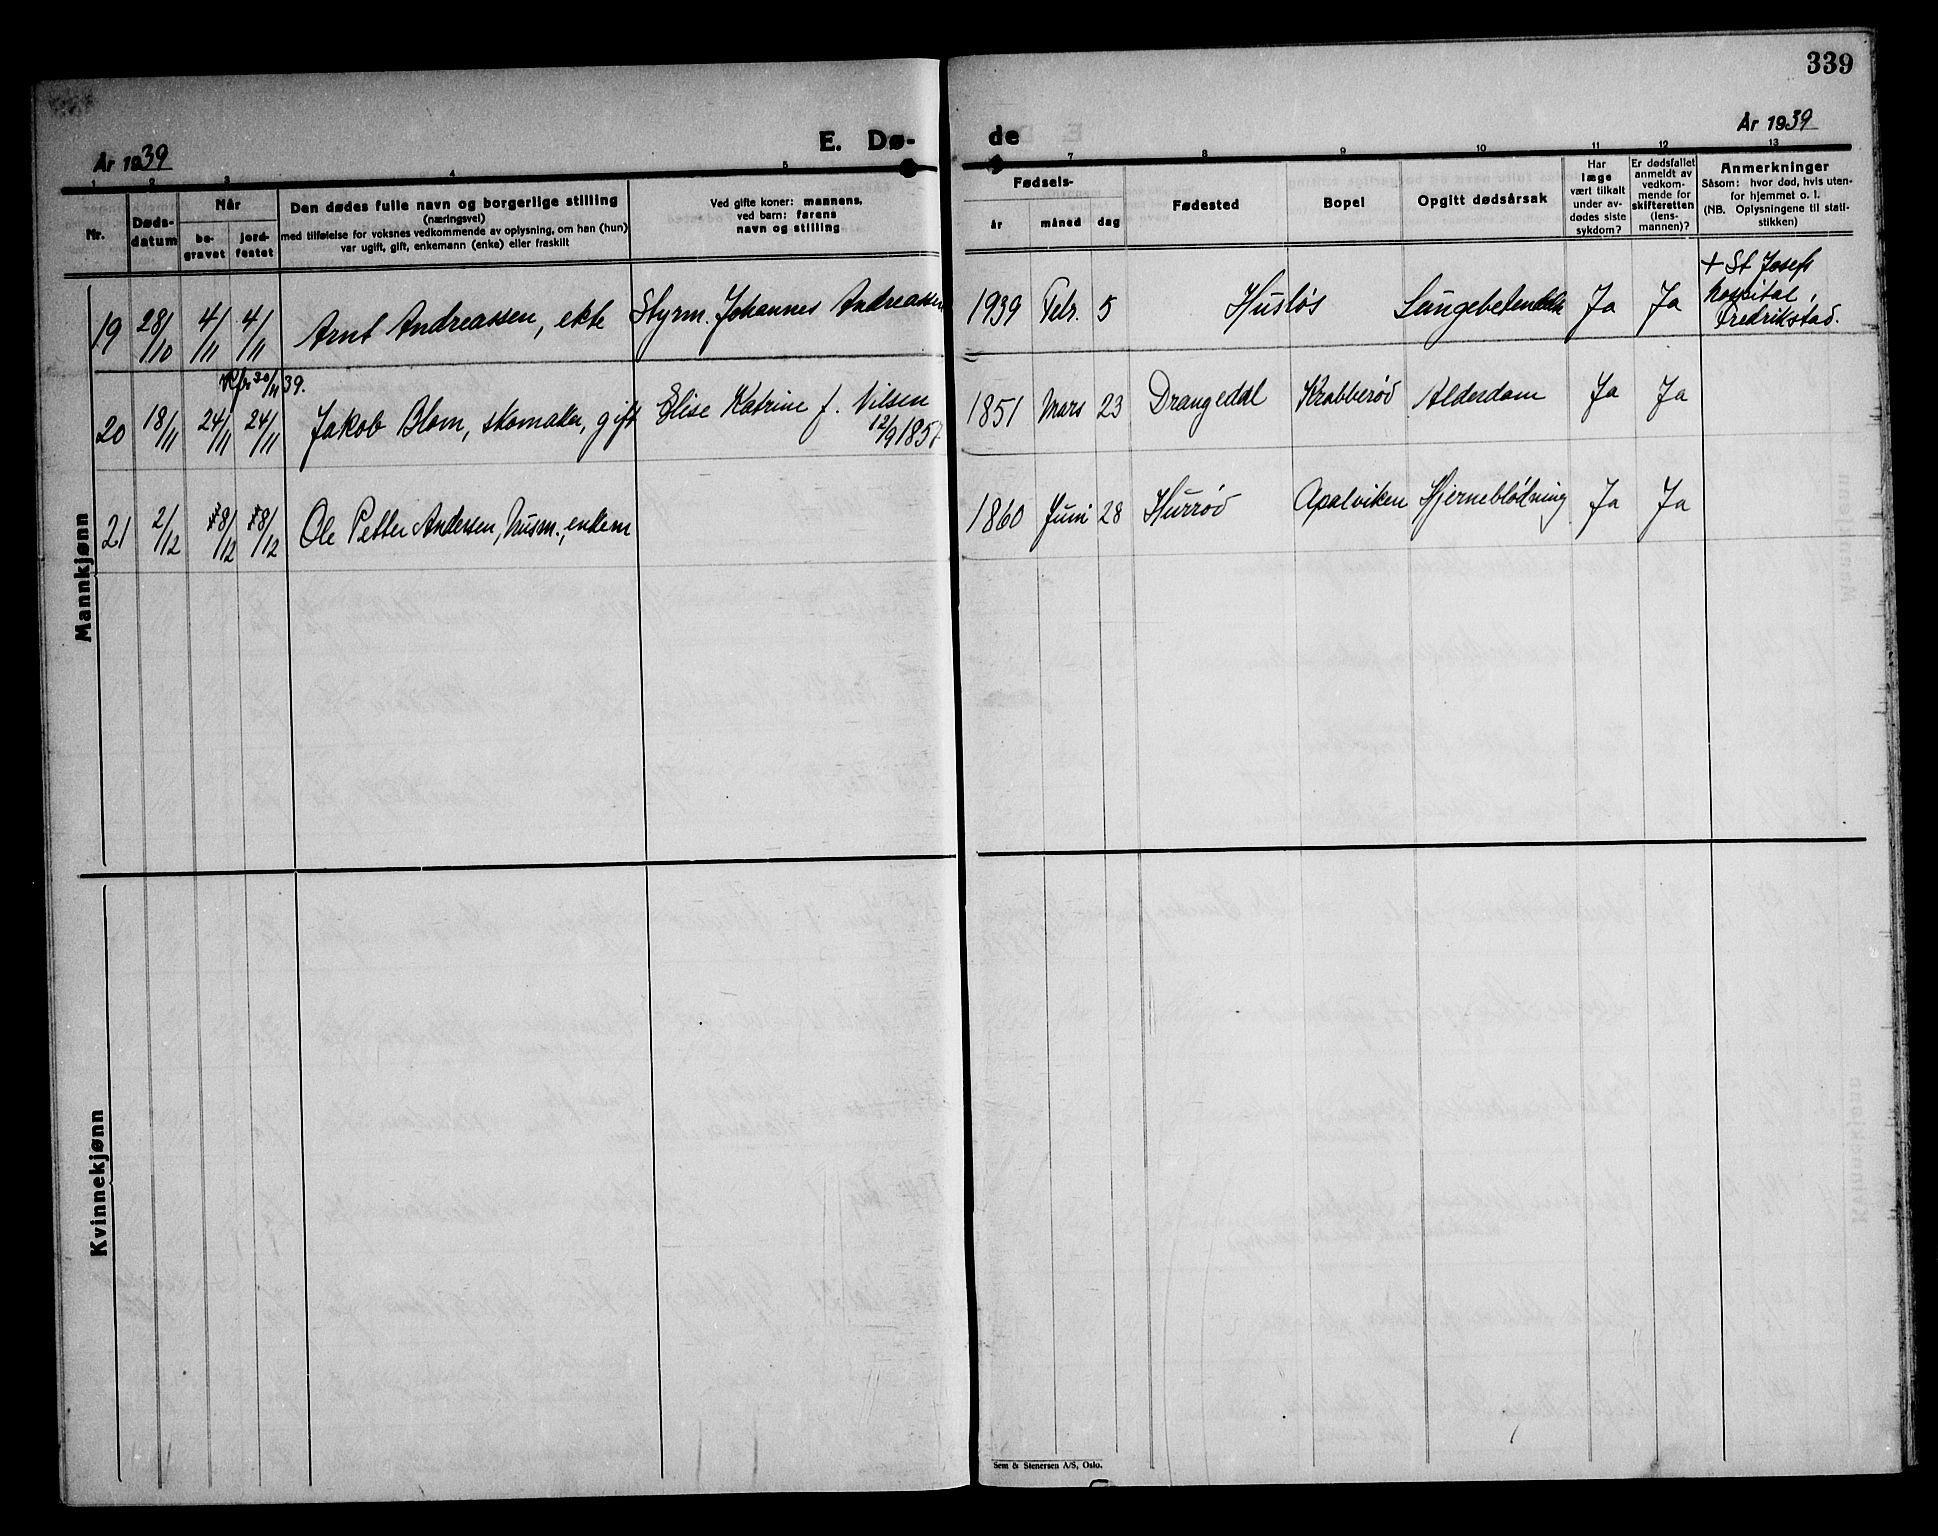 339
År 1939
E. Dø-
de
År 1939
1 2 3 4 5
7 8 9 10 11 12 13
Nr.
Døds-
datum
Når
be-
gravet
jord-
festet
Den dødes fulle navn og borgerlige stilling
(næringsvei)
med tilføielse for voksnes vedkommende av oplysning, om han (hun)
var ugift, gift, enkemann (enke) eller fraskilt
Ved gifte koner: mannens,
ved barn: farens
navn og stilling
Fødsels-
år måned dag
Fødested
Bopel
Opgitt dødsårsak
Har
læge
vært tilkalt
under av-
dødes siste
sykdom?
Er dødsfallet
anmeldt av
vedkom-
mende for
skifteretten
(lens-
mannen)?
Anmerkninger
Såsom: hvor død, hvis uten-
for hjemmet o. l.
(NB. Oplysningene til stati-
stikken)
Mannkjønn
19 28/10 4/11 4/11 Arnt Andreassen, ekte Styrm. Johannes Andreassen 1939 Febr. 5 Husløs Ja Ja
+ St Josefs
hospital,
Fredrikstad.
30/11 39.
20 18/11 24/11 24/11 Jakob Blom, skomaker, gift Elise Katrine f. Nilsen
1851 Mars 23 Drangedal Krabberød Alderdom Ja Ja
21 2/12 8/12 8/12 Ole Petter Andersen, husm., enkem 1860 Juni 28 Hurrød Apalviken Hjerneblødning Ja Ja
Kvinnekjønn
Sem & Stenersen A/S, Oslo.